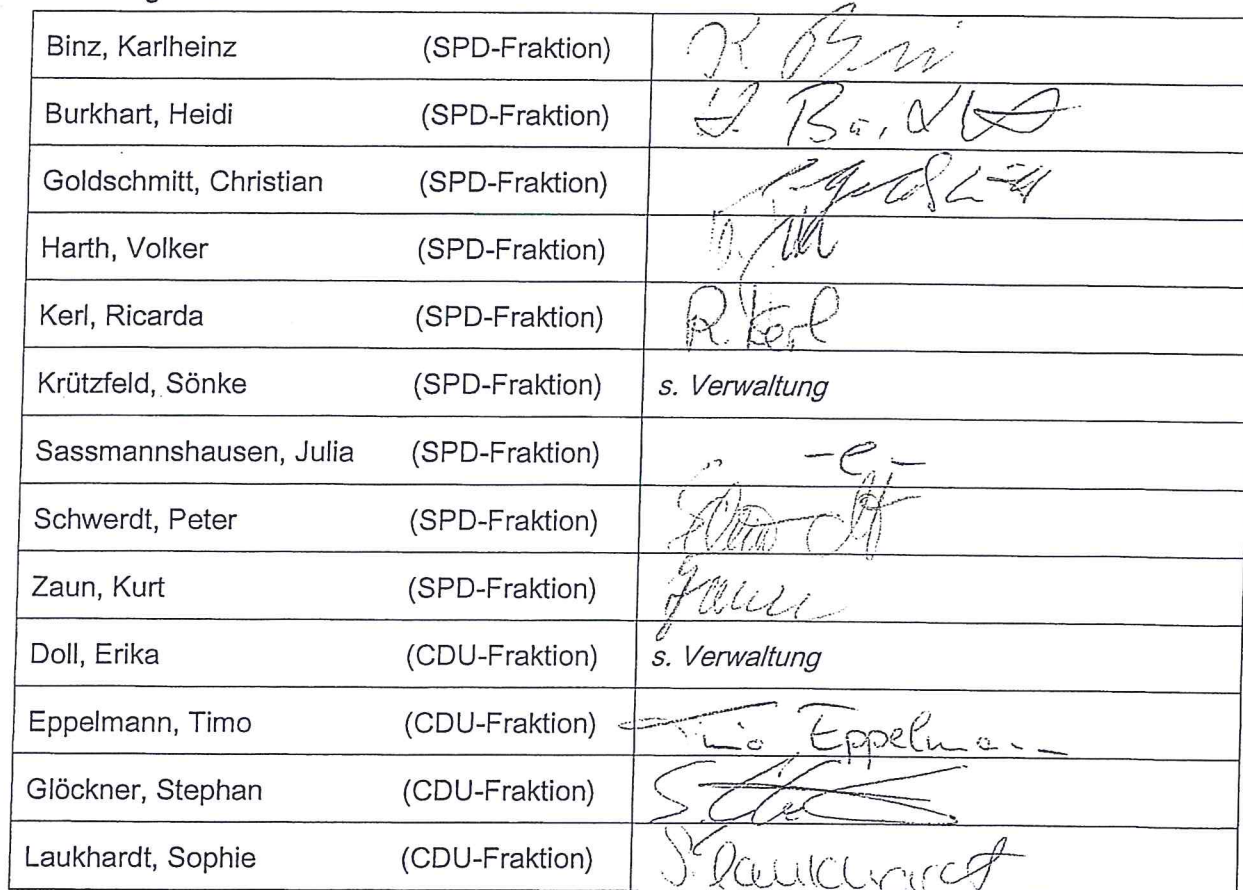 Binz, Karlheinz (SPD-Fraktion) K Binz
Burkhart, Heidi (SPD-Fraktion)
Goldschmitt, Christian (SPD-Fraktion)
Harth, Volker (SPD-Fraktion)
Kerl, Ricarda (SPD-Fraktion) R. Kerl
Krützfeld, Sönke (SPD-Fraktion) s. Verwaltung
Sassmannshausen, Julia (SPD-Fraktion) -e-
Schwerdt, Peter (SPD-Fraktion)
Zaun, Kurt (SPD-Fraktion) Zaun
Doll, Erika (CDU-Fraktion) s. Verwaltung
Eppelmann, Timo (CDU-Fraktion) Timo Eppelmann
Glöckner, Stephan (CDU-Fraktion)
Laukhardt, Sophie (CDU-Fraktion) S. Laukhardt